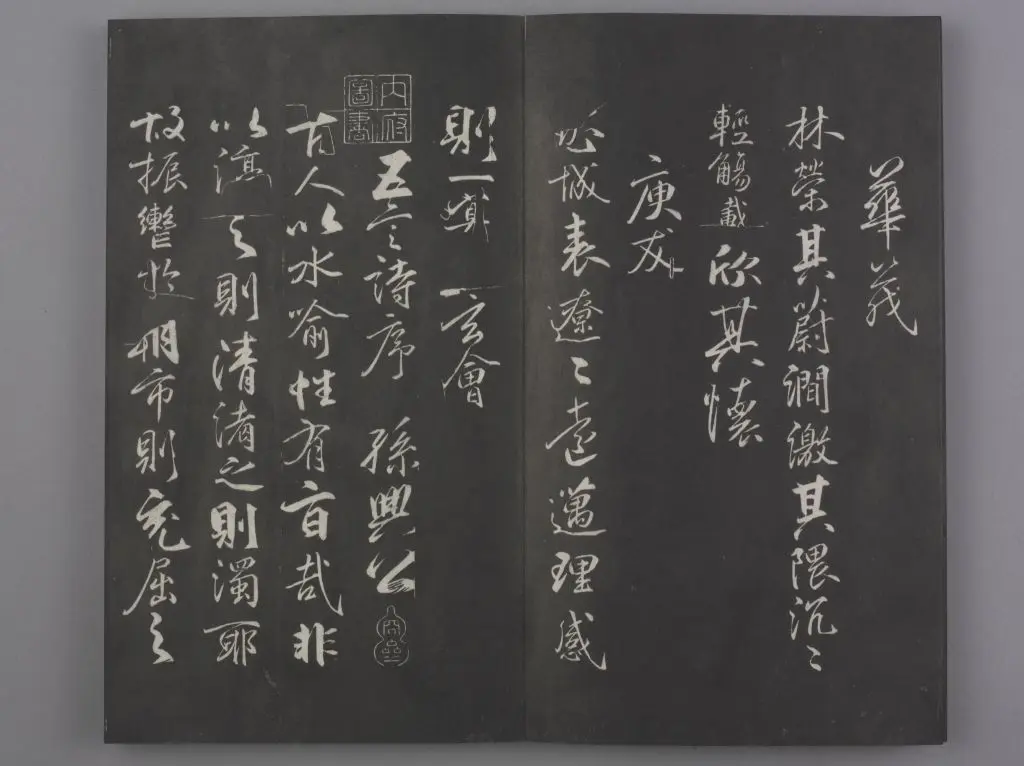 華茂
林榮其蔚澗激其隈沉〻
輕觴載欣其懷
庾友
心域表遼〻遠邁理感
則一玄會
五言詩序 孫興公
內府圖書
古人以水喻性有旨哉非
以渟之則清淆之則濁耶
故振轡於朝市則充屈之